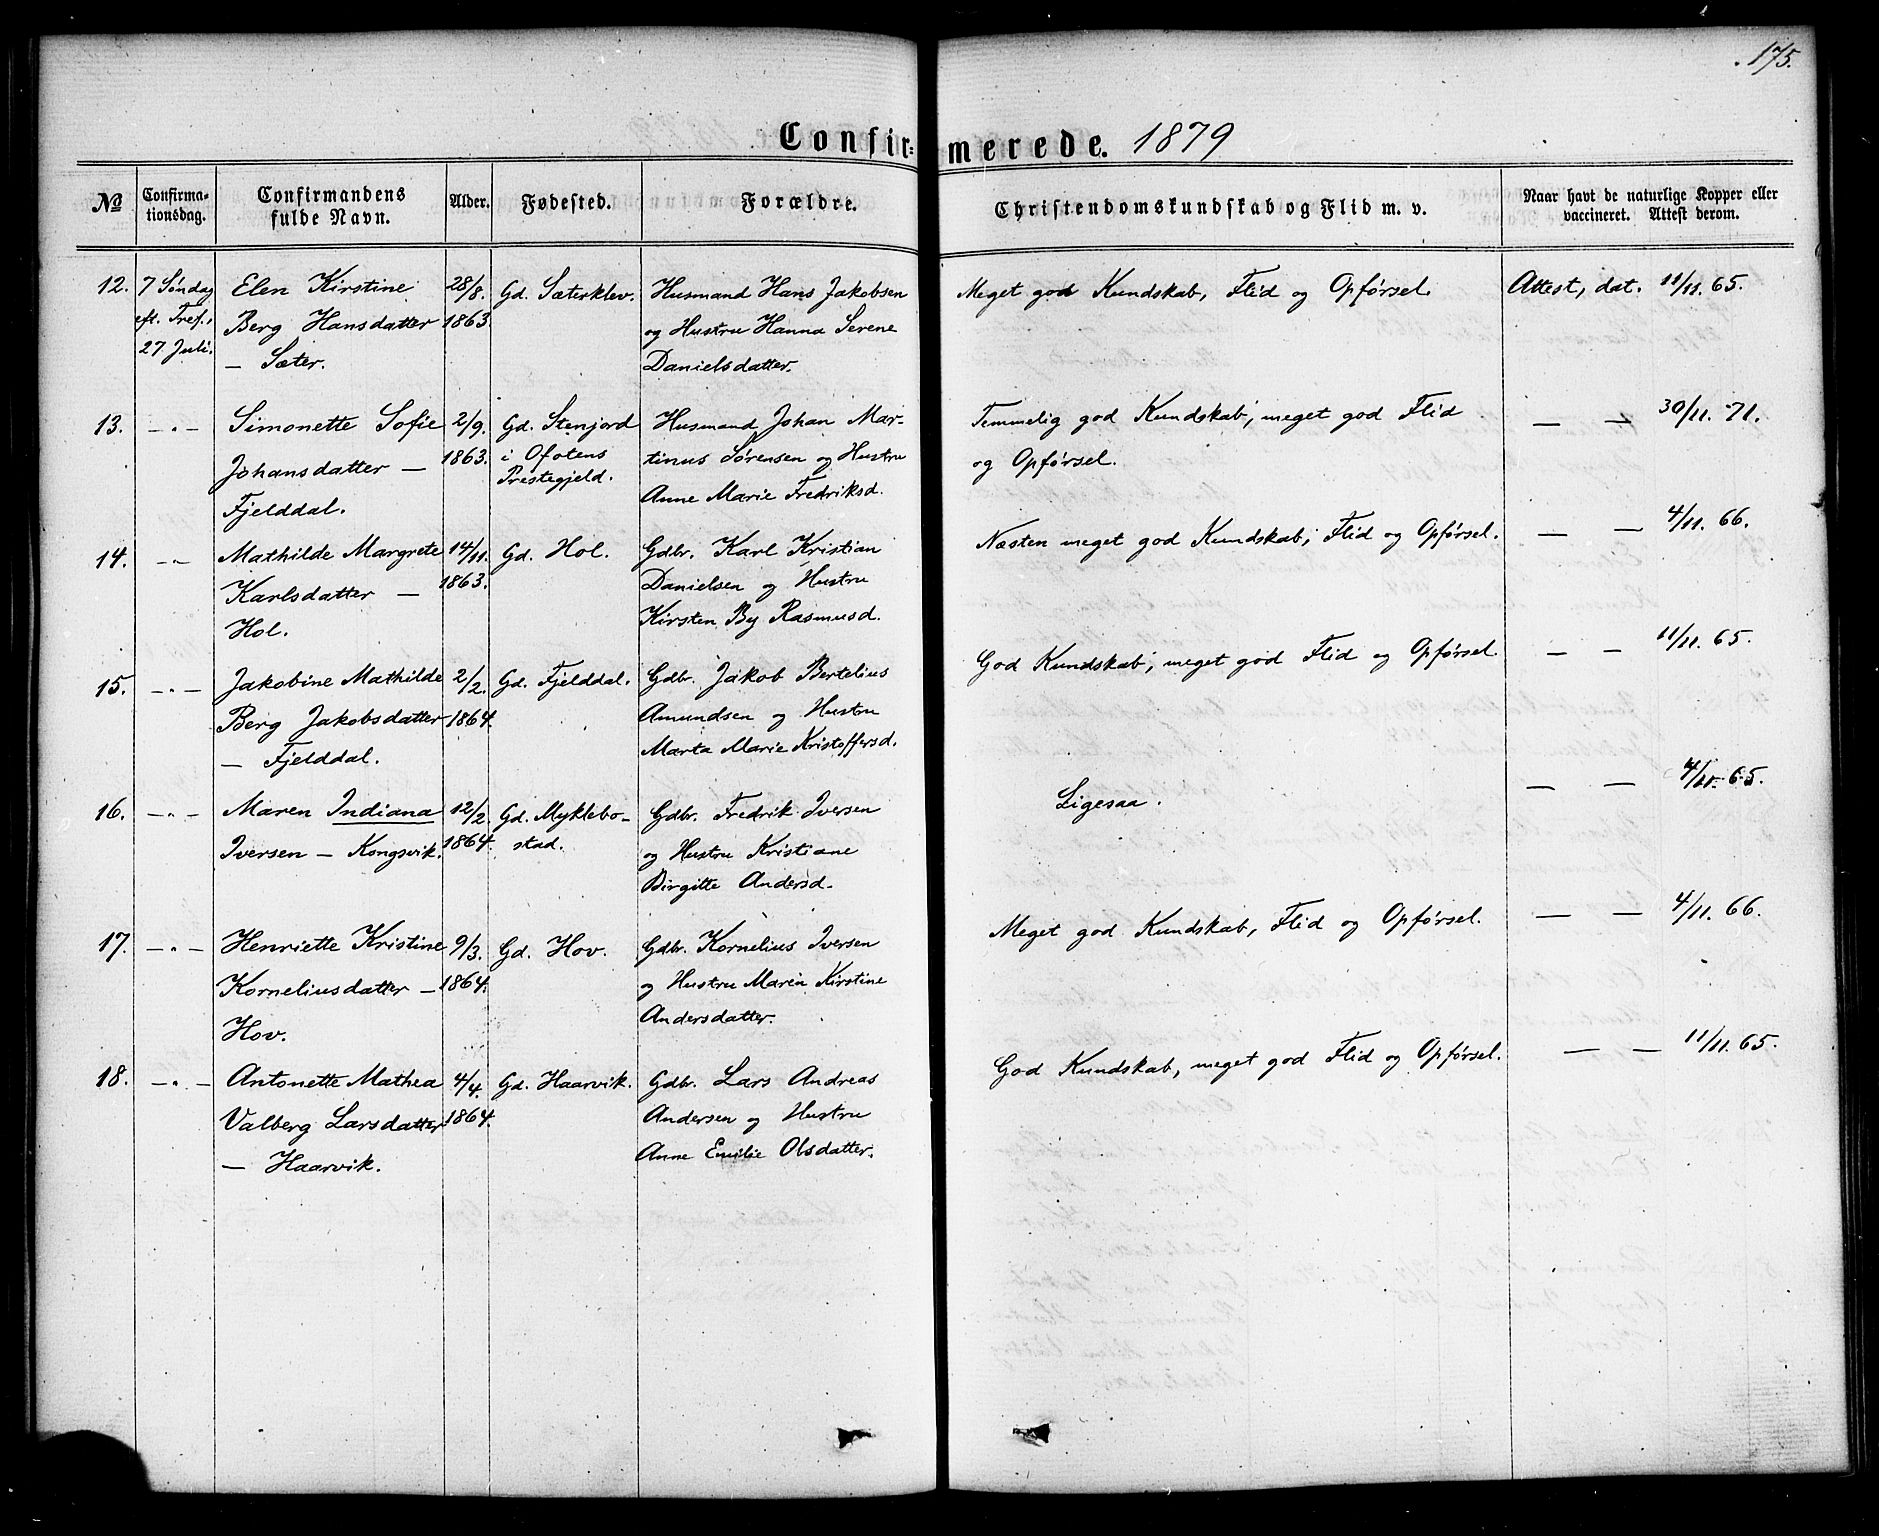 175.
Confirmerede. 1879
No
Confirmationsdag.
Confirmandens fulde Navn.
Alder.
Fødested.
Forældre.
Christendomskundskab og Flid m. v.
Naar havt de naturlige Kopper eller vaccineret. Attest derom.
12. 7 Søndag eft. Tref., 27 Juli.
Elen Kirstine
Berg Hansdatter
— Sæter.
28/8. 1863.
Gd. Sæterklev.
Husmand Hans Jakobsen
og Hustru Hanna Serene
Danielsdatter.
Meget god Kundskab, Flid og Opførsel.
Attest, dat. 11/11. 65.
13. — „ —
Simonette Sofie
Johansdatter —
Fjelddal.
2/9. 1863.
Gd. Stenjord
i Ofotens
Prestegjeld.
Husmand Johan Mar-
tinus Sørensen og Hustru
Anne Marie Fredriksd.
Temmelig god Kundskab, meget god Flid
og Opførsel.
— — 30/11. 71.
14. — „ —
Mathilde Margrete
Karlsdatter —
Hol.
14/11. 1863.
Gd. Hol.
Gdbr. Karl Kristian
Danielsen og Hustru
Kirsten By Rasmusd.
Næsten meget god Kundskab, Flid og Opførsel.
— — 4/11. 66.
15. — „ —
Jakobine Mathilde
Berg Jakobsdatter
— Fjelddal.
2/2. 1864.
Gd. Fjelddal.
Gdbr. Jakob Bertelius
Amundsen og Hustru
Marta Marie Kristoffersd.
God Kundskab, meget god Flid og Opførsel.
— — 11/11. 65.
16. — „ —
Maren Indiana
Iversen — Kongsvik.
12/2. 1864.
Gd. Myklebo-
stad.
Gdbr. Fredrik Iversen
og Hustru Kristiane
Birgitte Andersd.
Ligesaa.
— — 4/11. 65.
17. — „ —
Henriette Kristine
Korneliusdatter —
Hov.
9/3. 1864.
Gd. Hov.
Gdbr. Kornelius Iversen
og Hustru Maren Kirstine
Andersdatter.
Meget god Kundskab, Flid og Opførsel.
— — 4/11. 66.
18. — „ —
Antonette Mathea
Valberg Larsdatter
— Haarvik.
4/4. 1864.
Gd. Haarvik.
Gdbr. Lars Andreas
Andersen og Hustru
Anne Emilie Olsdatter.
God Kundskab, meget god Flid og Opførsel.
— — 11/11. 65.